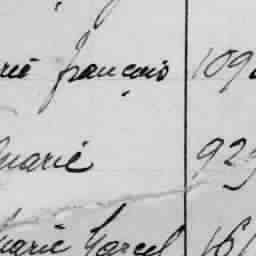 françois 109
marie 929
marie Marcel 161